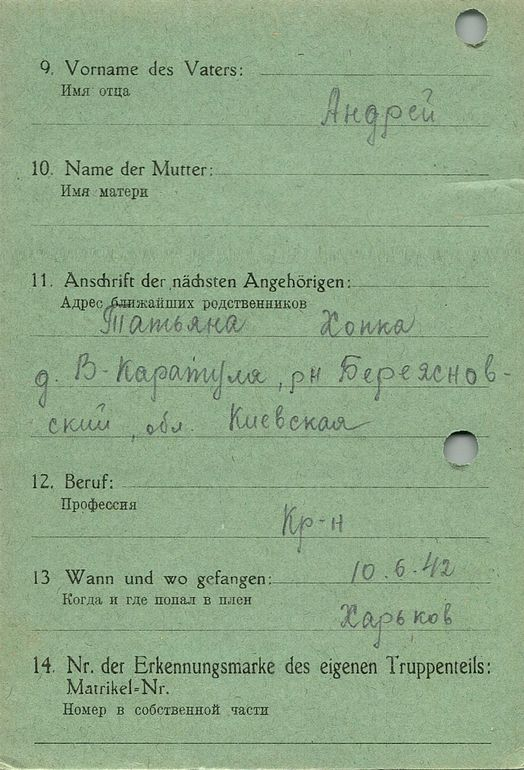 9. Vorname des Vaters:
Имя отца
Андрей
10. Name der Mutter:
Имя матери
11. Anschrift der nächsten Angehörigen:
Адрес ближайших родственников
Татьяна Хопка
д. В-Каратуля, рн Береяснов-
ский, обл. Киевская
12. Beruf:
Профессия
Кр-н
13 Wann und wo gefangen: 10.6.42
Когда и где попал в плен
Харьков
14. Nr. der Erkennungsmarke des eigenen Truppenteils:
Matrikel-Nr.
Номер в собственной части